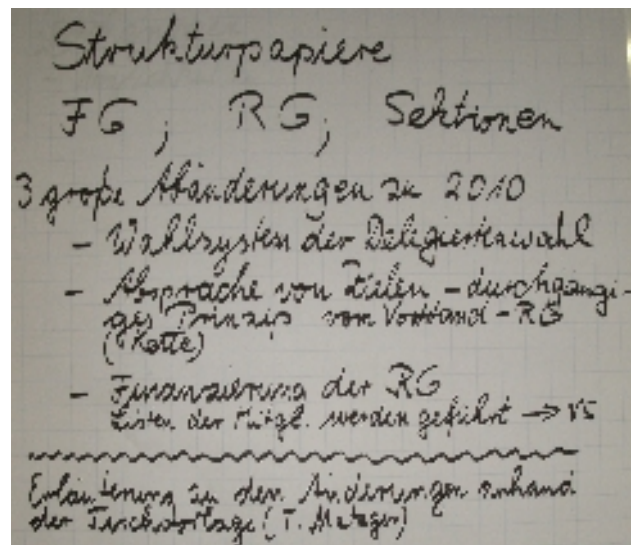 Strukturpapiere
FG; RG; Sektionen
3 große Abänderungen zu 2010
- Wahlsystem der Deligiertenwahl
- Absprache von Zielen - durchgängi-
ges Prinzip vom Vorstand - RG
(Kotte)
- Finanzierung der RG
Listen der Mitgl. werden geführt →
Erläuterung zu den Änderungen anhand
der Tischvorlage (T. Metzger)